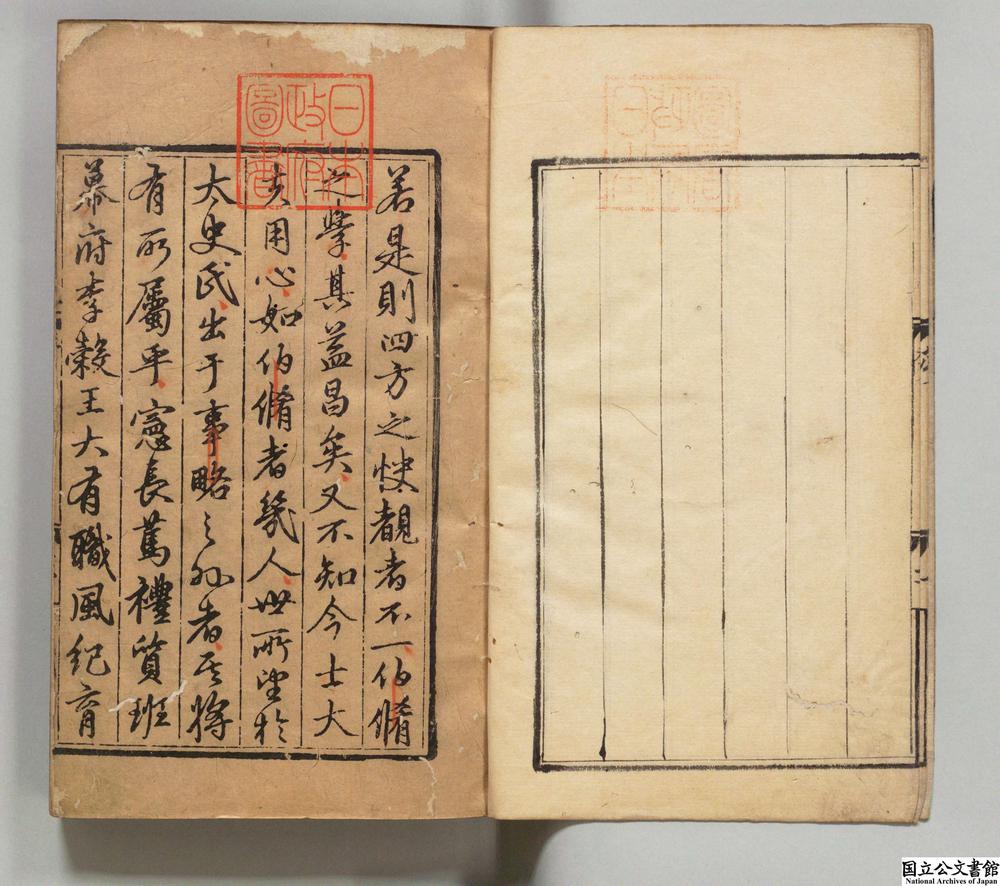 日本
政府
圖書
若是則四方之快覩者不一伯脩
之學其益昌矣又不知今士大
夫用心如伯脩者幾人世所望於
太史氏出于事略之外者其將
有所屬乎憲長篤禮質班
幕府李穀王大有職風紀育
国立公文書館
National Archives of Japan